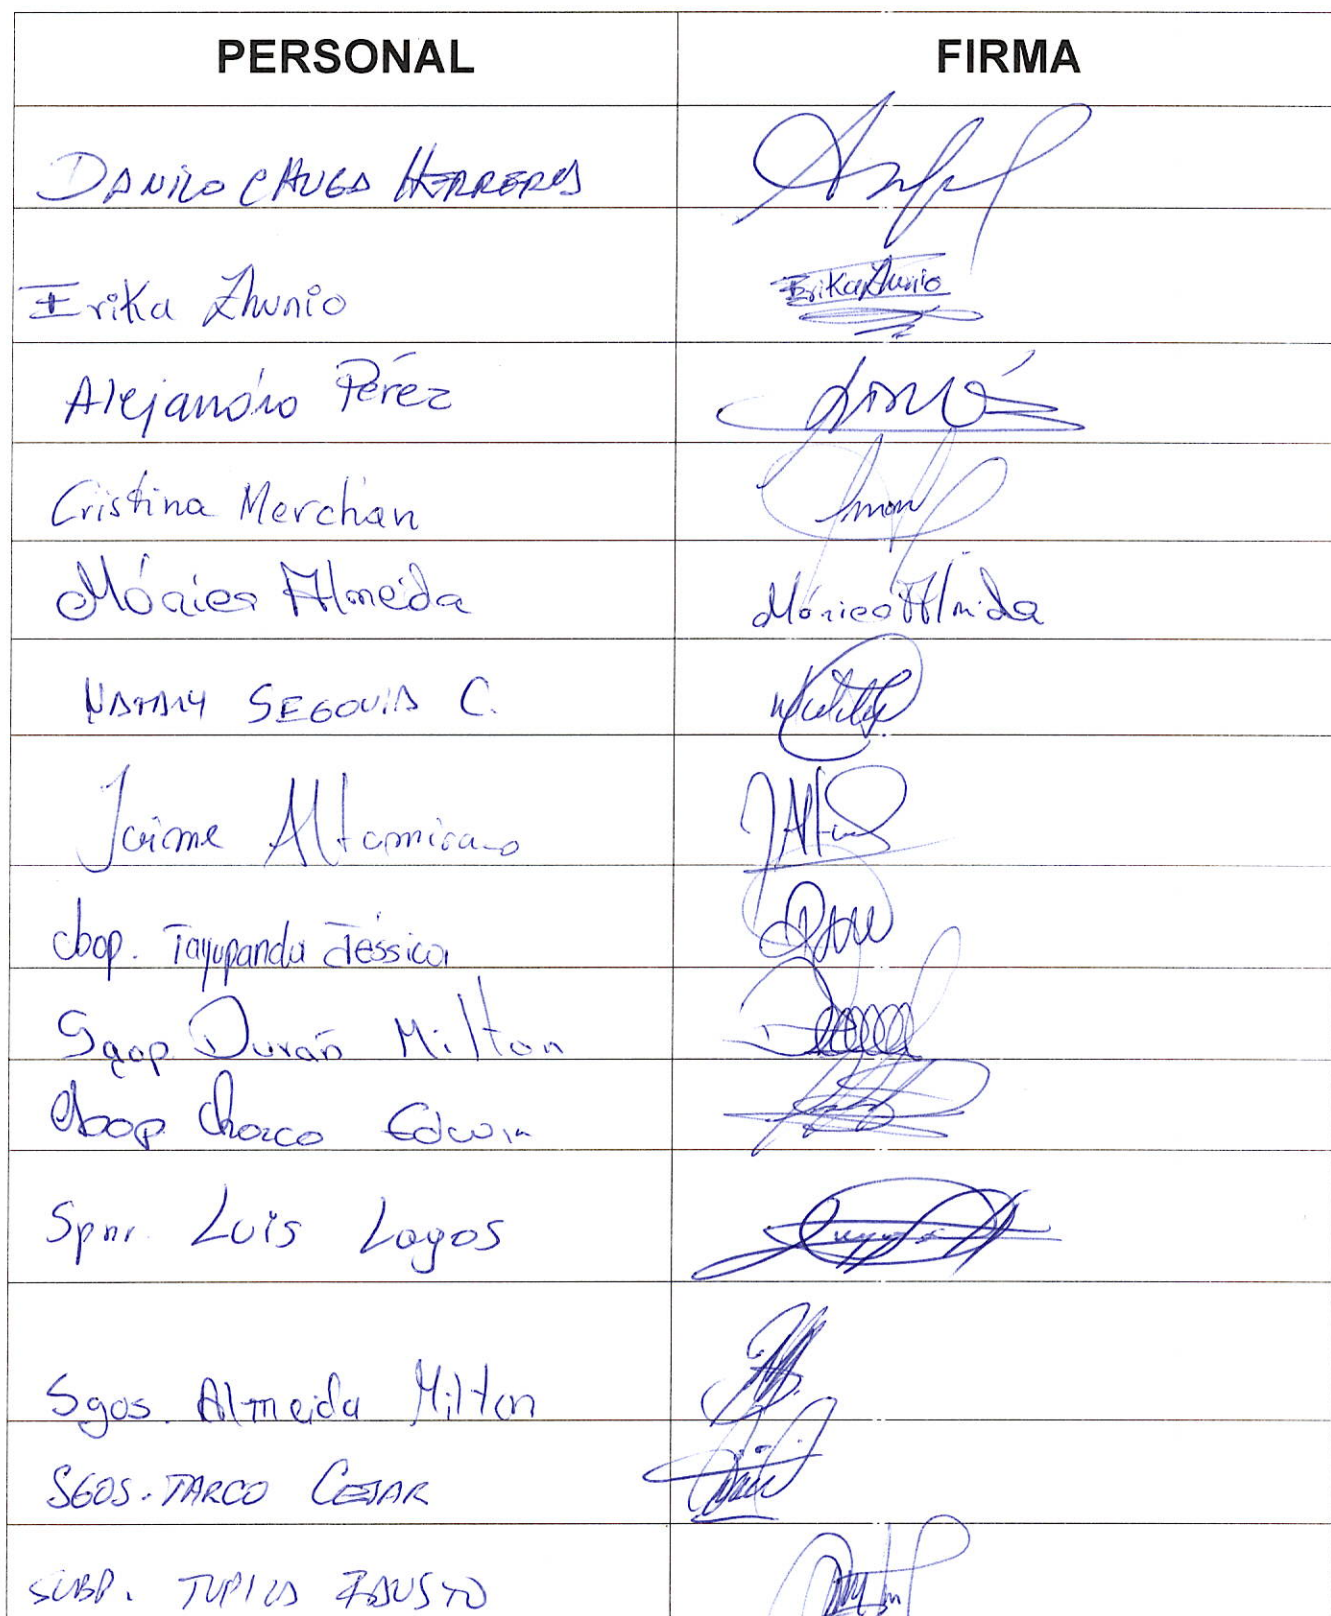 PERSONAL FIRMA
DANILO CHUGA HERRERA
Erika Zhunio Erika Zhunio
Alejandro Pérez
Cristina Merchán
Mónica Almeida Mónica Almeida
NATALY SEGOVIA C.
Jaime Altamirano
cbop. Tayupanda Jéssica
Sgop Durán Milton
Cbop Chasco Edwin
Luis Lagos
Sgos. Almeida Milton
SGOS. TARCO CESAR
SUBP. TUPIZA FAUSTO